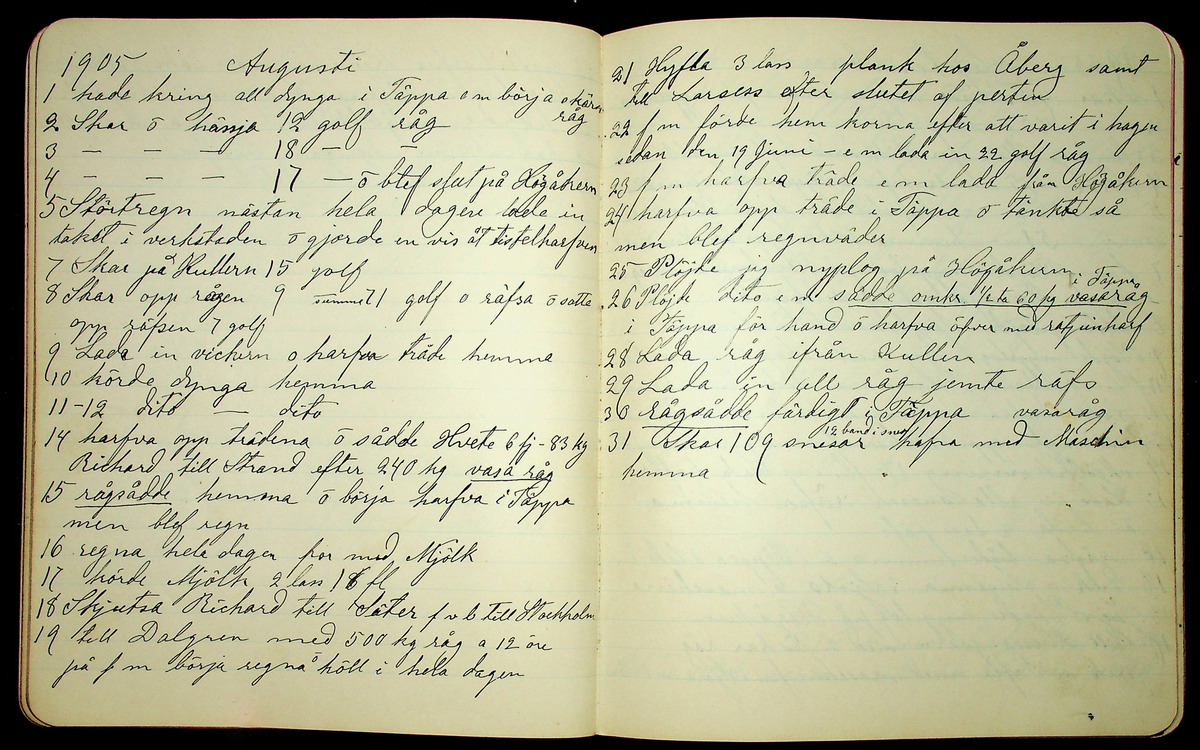 1905 Augusti
1 hade kring all dynga i Täppa em börja skära
råg
2 Skar o hänja 12 golf råg
3 — — — 18 — —
4 — — — 17 — o blef slut på Högåkern
5 Störtregn nästan hela dagen lade in
taket i verkstaden o gjorde en vis åt tistelharfven
7 Skar på Kullern 15 golf
8 Skar opp rågen 9 summa 71 golf o räfsa o satte
opp räfsen 7 golf
9 Lada in vickern o harfva träde hemma
10 körde dynga hemma
11-12 dito — dito
14 harfva opp trädena o sådde Hvete 6 fj - 83 kg
Richard till Strand efter 240 kg vasa råg
15 rågsådde hemma o börja harfva i Täppa
men blef regn
16 regna hela dagen for med Mjölk
17 körde Mjölk 2 lass 18 fl
18 Skjutsa Richard till Säter f v b till Stockholm
19 till Dalgren med 500 kg råg a 12 öre
på f m börja regna höll i hela dagen
21 Hyfla 3 lass plank hos Åberg samt
till Larsess efter slutet af
22 f m förde hem korna efter att varit i hagen
sedan den 19 Juni — e m lada in 22 golf råg
23 f m harfva träde e m lada från Högåkern
24 harfva opp träde i Täppa o tänkte så
men blef regnväder
25 Plöjde jag nyplog på Högåkern
i Täppa
26 Plöjde dito em sådde omkr 1/2 ta 60 kg vasaråg
i Täppa för hand o harfva öfver med
28 Lada råg ifrån Kullen
29 Lada in all råg jemte räfs
30 rågsådde färdigt i Täppa vasaråg
12 band i snes
31 Skar 109 snesar hafra med Maschin
hemma